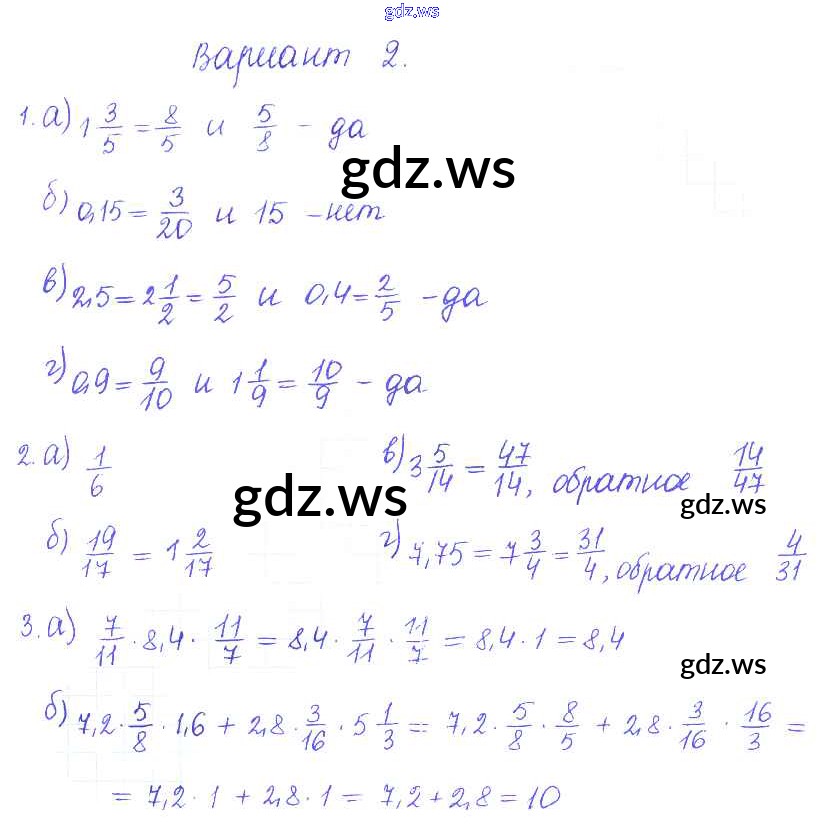 gdz.ws
Вариант 2.
1. а) 1 3/5 = 8/5 и 5/8 - да
gdz.ws
б) 0,15 = 3/20 и 15 - нет
в) 2,5 = 2 1/2 = 5/2 и 0,4 = 2/5 - да
г) 0,9 = 9/10 и 1 1/9 = 10/9 - да
2. а) 1/6
в) 3 5/14 = 47/14, обратное 14/47
gdz.ws
gdz.ws
б) 19/17 = 1 2/17
г) 7,75 = 7 3/4 = 31/4, обратное 4/31
3. а) 7/11 · 8,4 · 11/7 = 8,4 · 7/11 · 11/7 = 8,4 · 1 = 8,4
gdz.ws
б) 7,2 · 5/8 · 1,6 + 2,8 · 3/16 · 5 1/3 = 7,2 · 5/8 · 8/5 + 2,8 · 3/16 · 16/3 =
= 7,2 · 1 + 2,8 · 1 = 7,2 + 2,8 = 10